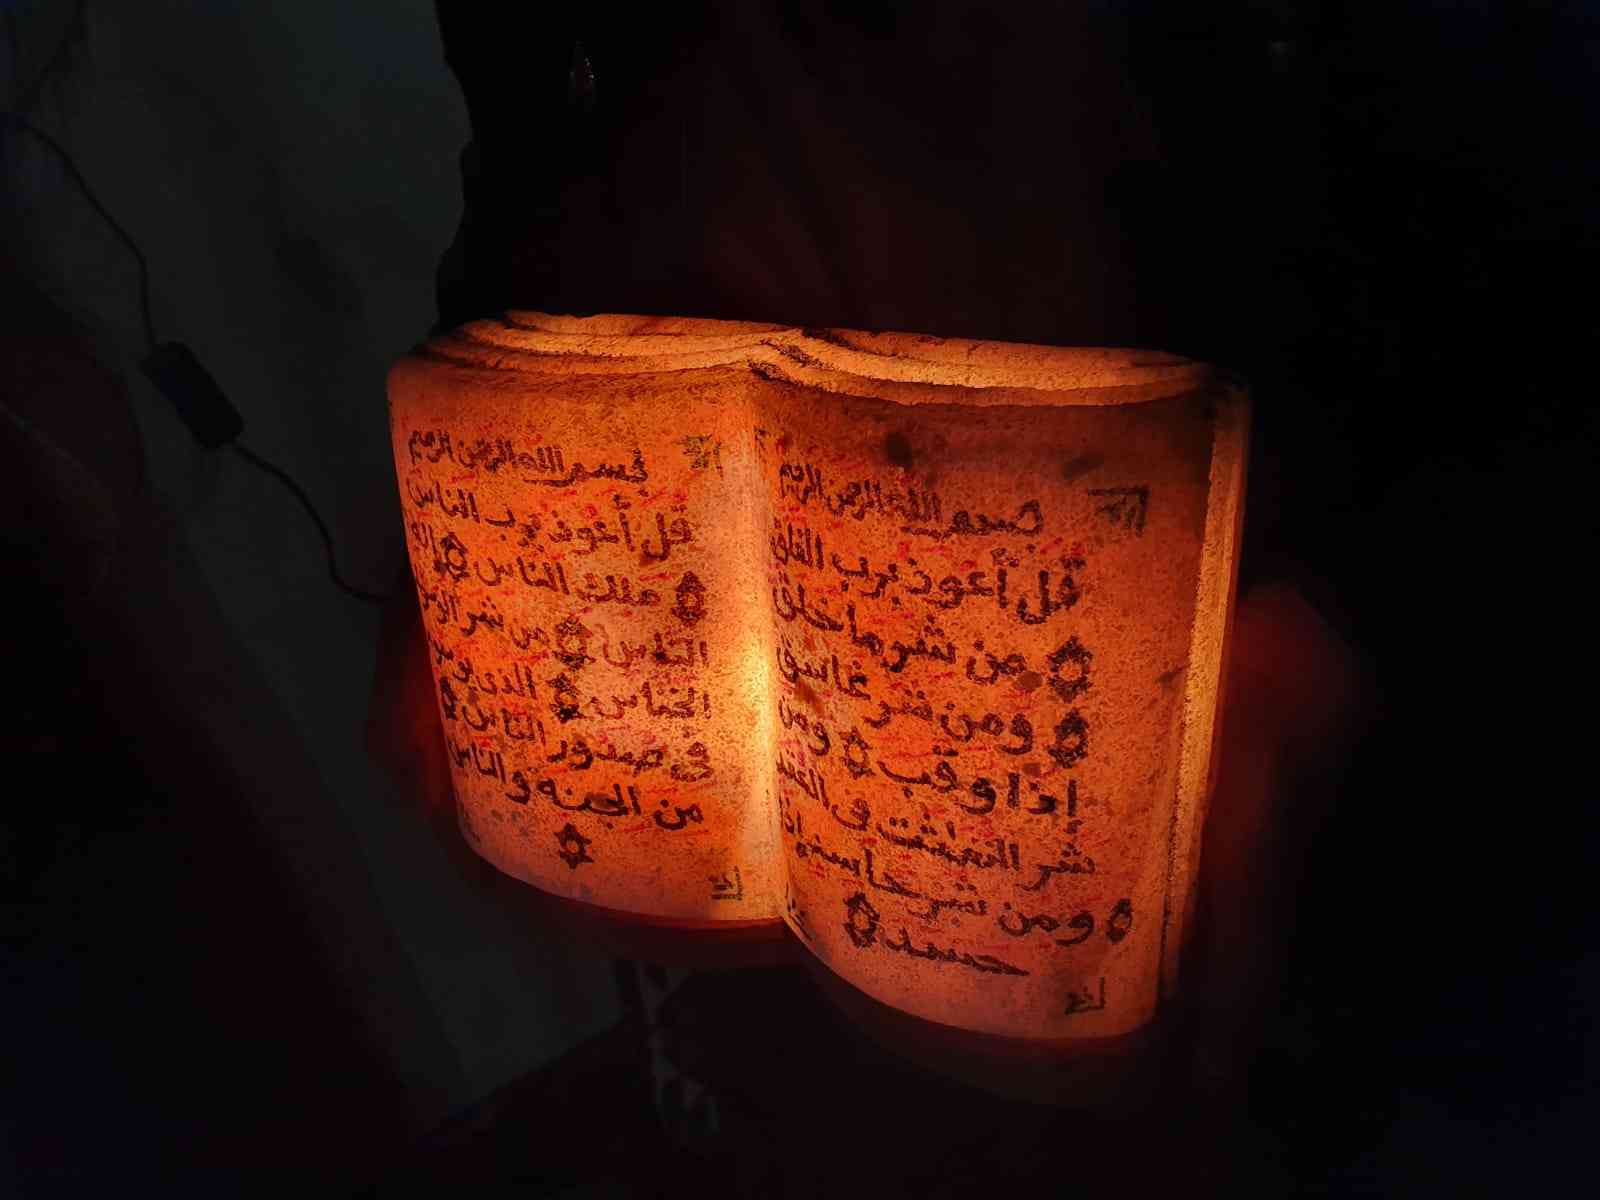 بسم الله الرحمن الرحيم
قل أعوذ برب الفلق
من شر ما خلق
ومن شر غاسق
إذا وقب ومن
شر النفثت فى العقد
ومن شر حاسد إذا
حسد
بسم الله الرحمن الرحيم
قل أعوذ برب الناس
ملك الناس إله
الناس من شر الوس
الخناس الذى يوسو
فى صدور الناس
من الجنه والناس